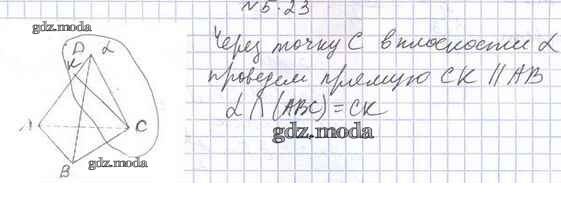 N 5.23
gdz.moda
D α
K
A
C
B
gdz.moda
Через точку C в плоскости α
проведем прямую CK || AB
α ∩ (ABC) = CK
gdz.moda